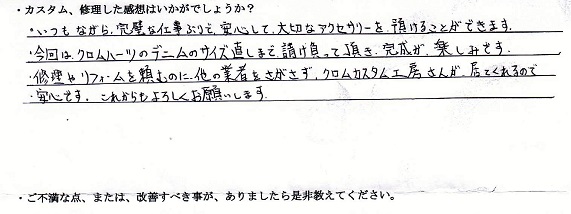 ・カスタム、修理した感想はいかがでしょうか？
・いつもながら、完璧な仕事ぶりで、安心して、大切なアクセサリーを、預けることができます。
・今回は、クロムハーツのデニムのサイズ直しまで、請け負って頂き、完成が、楽しみです。
・修理やリフォームを頼むのに、他の業者をさがさず、クロムカスタム工房さんが、居てくれるので
・安心です。これからもよろしくお願いします。
・ご不満な点、または、改善すべき事が、ありましたら是非教えてください。